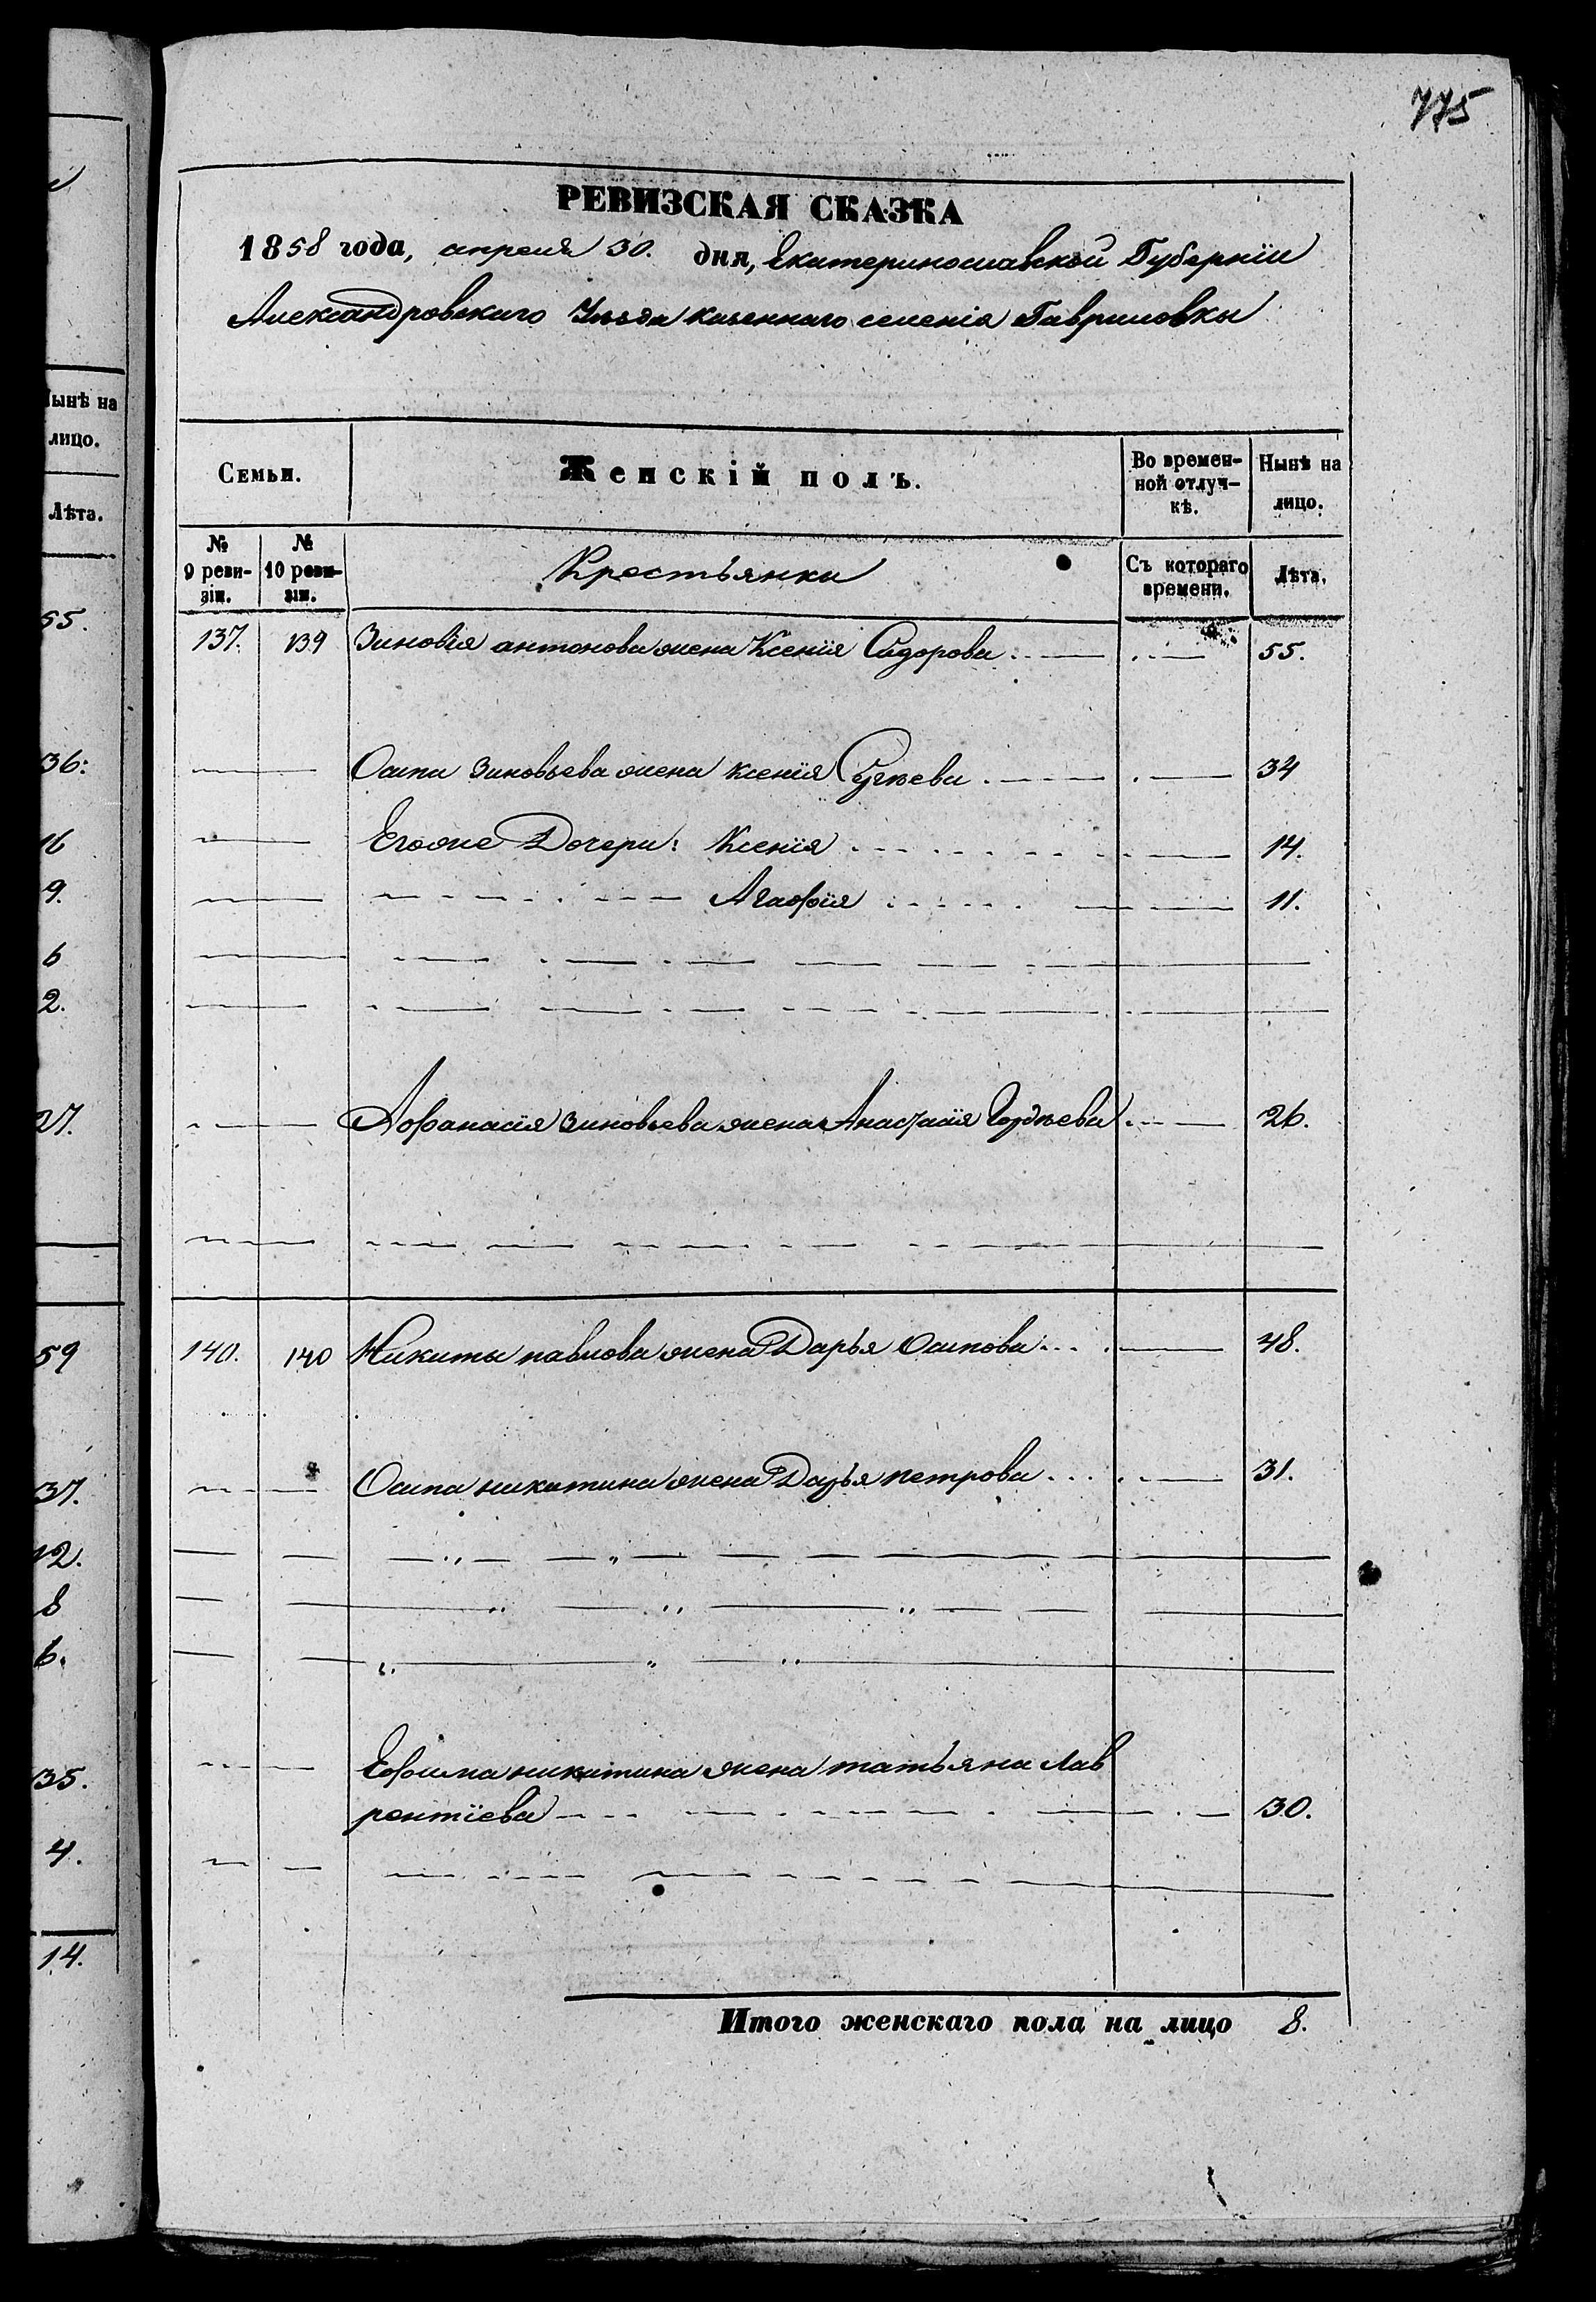 775
РЕВИЗСКАЯ СКАЗКА
1858 года, апреля 30. дня, Екатеринославской Губерніи
Александровскаго Уѣзда казеннаго селенія Гавриловки
Семьи.
Женскій полъ.
Во времен-
ной отлуч-
кѣ.
Нынѣ на
лицо.
№
9 реви-
зіи.
№
10 реви-
зіи.
Крестьянки
Съ котораго
времени.
Лѣта.
137. 139 Зиновія антонова жена Ксенія Сидорова 55.
Осипа Зиновьева жена Ксенія 34
Егоже Дочери: Ксенія 14.
Агафія 11.
Афанасія Зиновьева жена Анастасія Гордѣева 26.
140. 140 Никиты павлова жена Дарья Осипова 48.
Осипа никитина жена Дарья петрова 31.
Ефима никитина жена татьяна Лав
рентіева 30.
Итого женскаго пола на лицо 8.
ынѣ на
лицо.
Лѣта.
55.
36:
16
9.
6
2.
27.
59
37.
12.
8
6.
35.
4.
14.